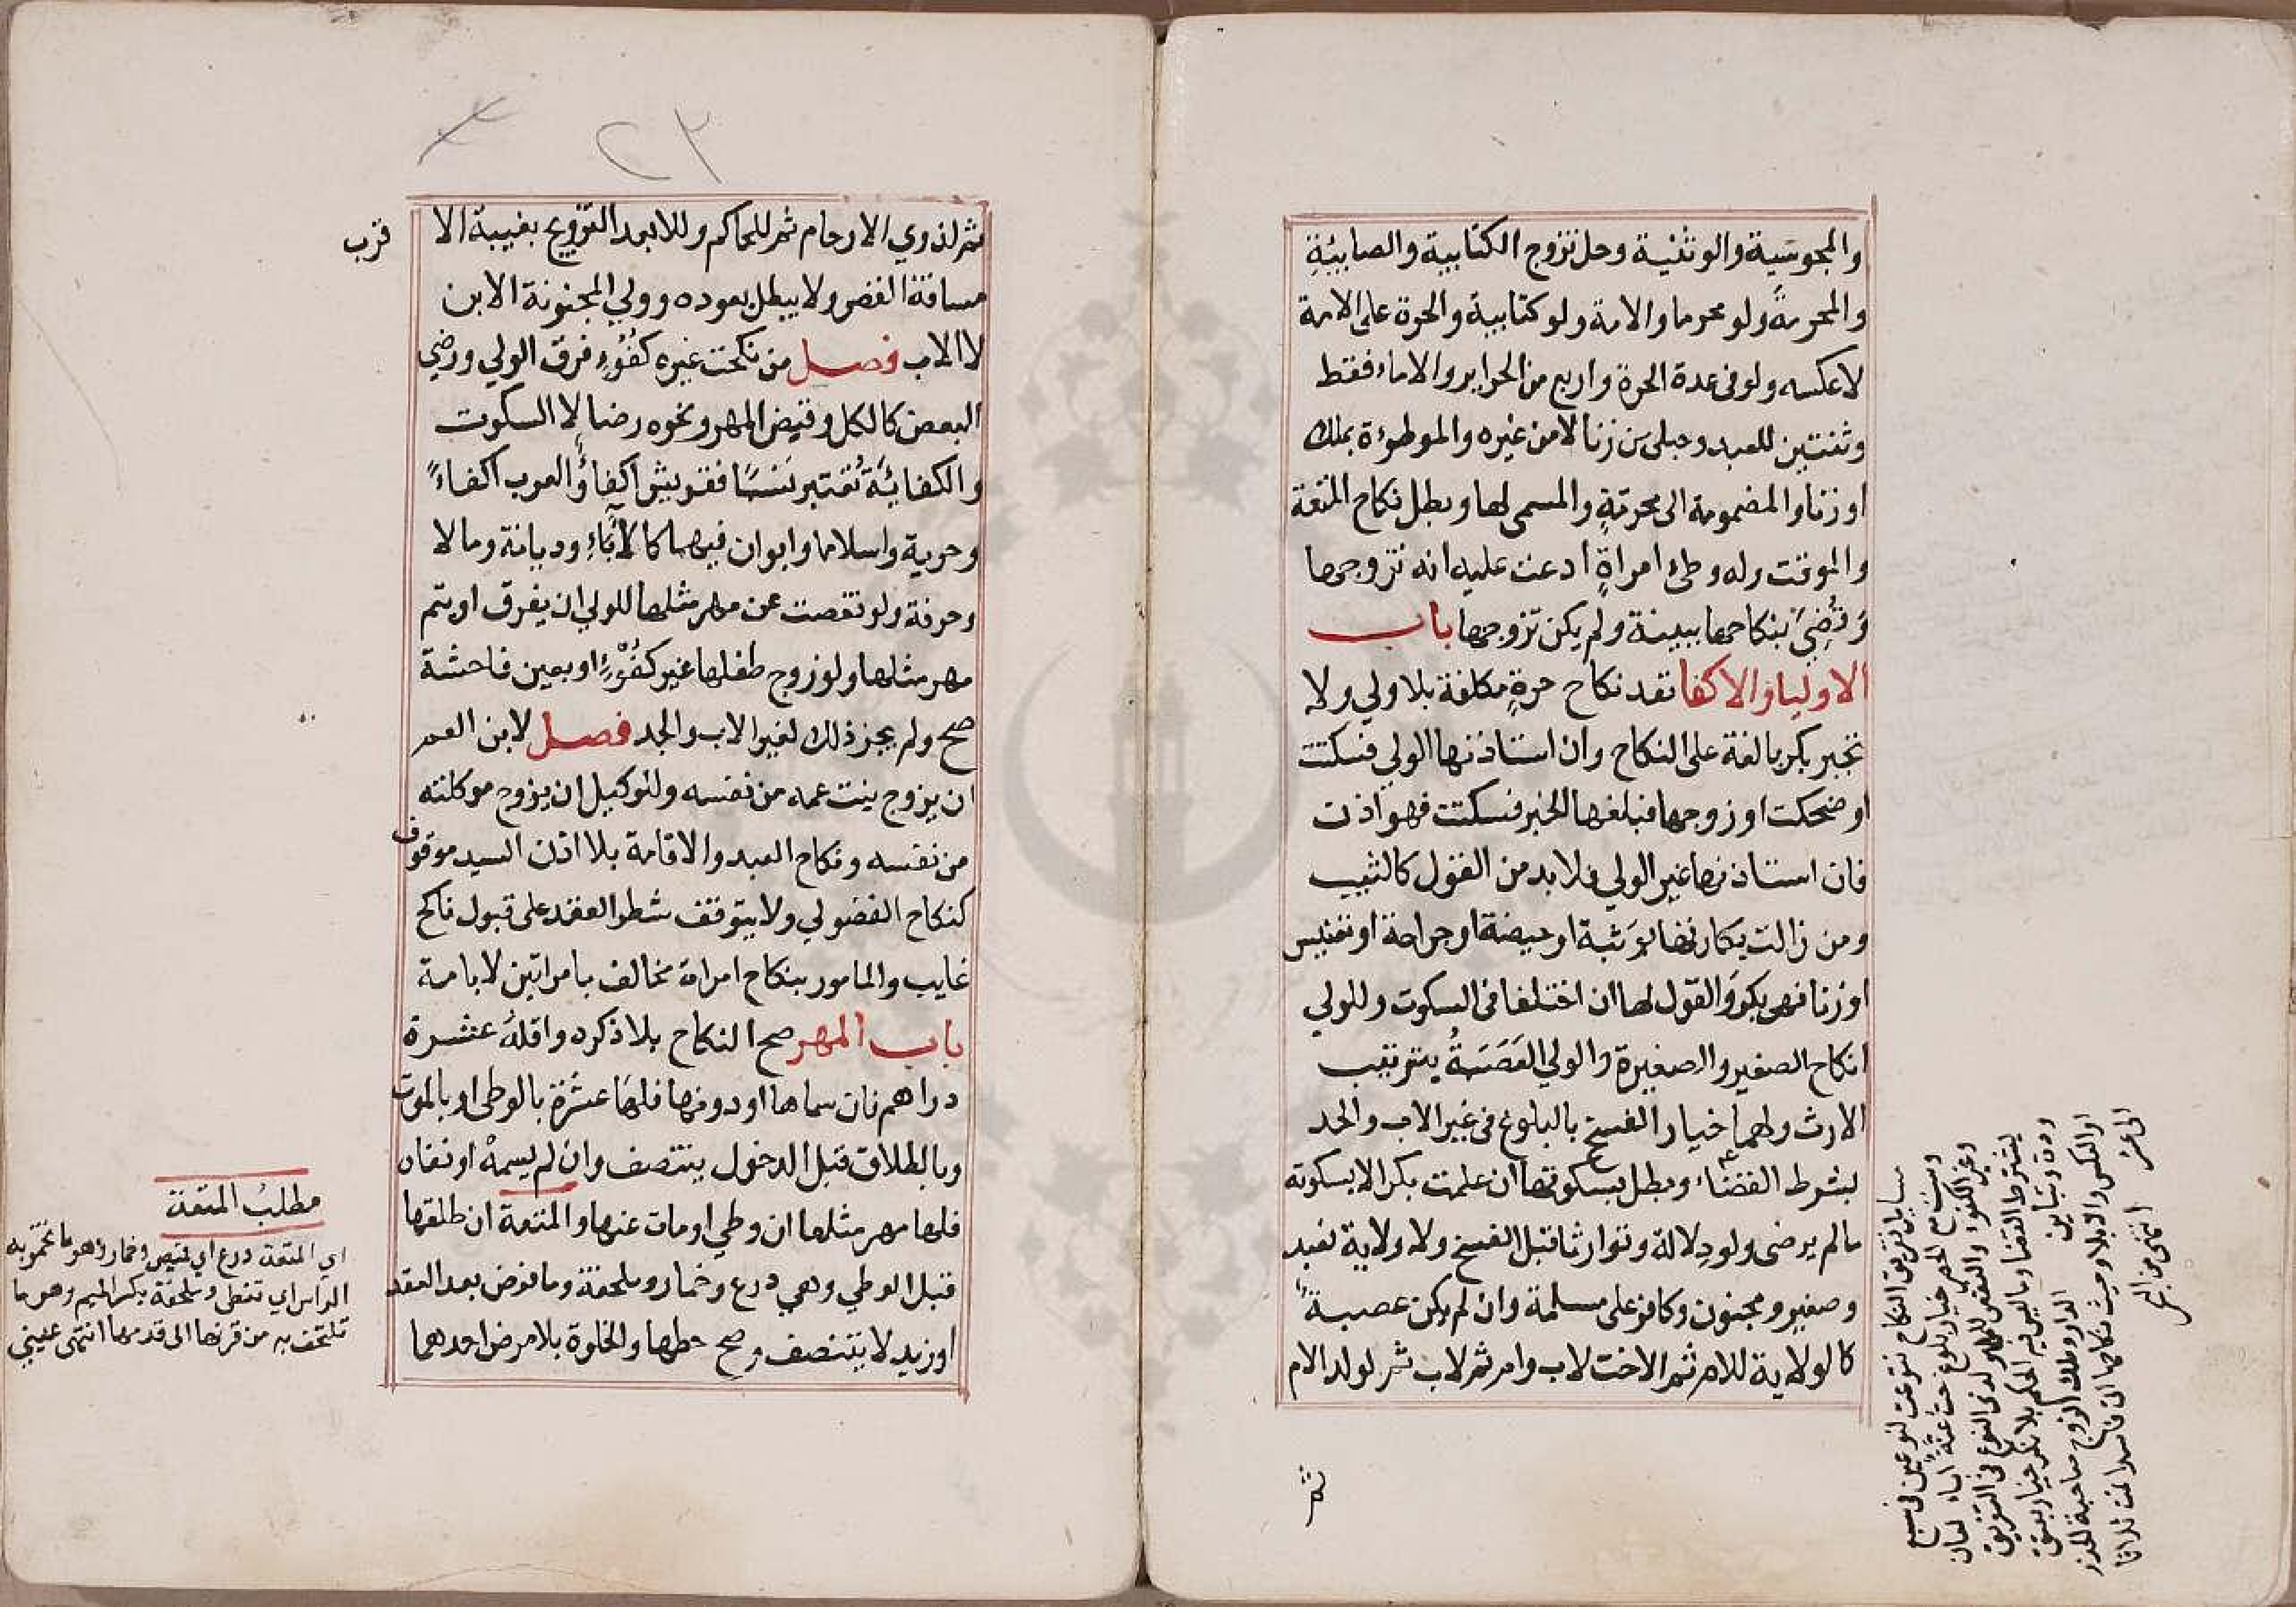 والمجوسية والوثنية وحل تزوج الكتابية والصابيئة
والمحرمة ولو محرما والامة ولو كتابية والحرة على الامة
لا عكسه ولو فى عدة الحرة واربع من الحراير والاماء فقط
وثنتين للعبد وحبلى من زنا لا من غيره والموطوءة بملك
او زنا والمضمومة الى محرمة والمسمى لها وبطل نكاح المتعة
والموقت وله وطئ امراة ادعت عليه انه تزوجها
وقضي بنكاحها ببينة ولم يكن تزوجها باب
الاوليا والاكفا نفد نكاح حرة مكلفة بلا ولي ولا
تجبر بكر بالغة على النكاح وان استاذنها الولي فسكتت
او ضحكت او زوجها فبلغها الخبر فسكتت فهو اذن
فان استاذنها غير الولي فلا بد من القول كالثيب
ومن زالت بكارتها بوثبة او حيضة او جراحة او تعنيس
او زنا فهى بكر والقول لها ان اختلفا فى السكوت وللولي
انكاح الصغير والصغيرة والولي العصبة بترتيب
الارث ولهما خيار الفسخ بالبلوغ فى غير الاب والجد
بشرط القضاء وبطل بسكوتها ان علمت بكرا لا بسكوته
مالم يرضى ولو دلالة وتوارثا قبل الفسخ ولا ولاية لعبد
وصغير ومجنون وكافر على مسلمة وان لم يكن عصبة
كالولاية للام ثم الاخت لاب وام ثم لاب ثم لولد الام
ثم
مسايل تفريق النكاح تنوعت لنوعين فى سبع
وست مع الحصر خيار بلوغ عنة اباء لعان
وغير الكفؤ والنقص للمهر لدى النوع فى التفريق
يشترط القضا وما ليس فيه الحكم بلا نكر خيار بعتق
ردة وتباين الدار وملك الزوج صاحبة الخدر
او العكس والايلاء وحيث نكاحها اتى فاسدا تمت ثلاثا
الى عشر انتهى من البحر
٢٣
ثم لذوي الارحام ثم للحاكم وللابعد التزويج بغيبة الا
قرب
مسافة القصر ولا يبطل بعوده وولي المجنونة الابن
لا الاب فصل من نكحت غير كفؤ فرق الولي ورضي
البعض كالكل وقبض المهر ونحوه رضا لا السكوت
والكفائة تعتبر نسبا فقريش اكفاؤ والعرب اكفاء
وحرية واسلاما وابوان فيهما كالاباء وديانة ومالا
وحرفة ولو نقصت عن مهر مثلها للولي ان يفرق او يتم
مهر مثلها ولو زوج طفلها غير كفؤ او بغبن فاحشة
صح ولم يجز ذلك لغير الاب والجد فصل لابن العم
ان يزوج بنت عمه من نفسه وللوكيل ان يزوج موكلته
من نفسه ونكاح العبد والاقامة بلا اذن السيد موقوف
كنكاح الفضولي ولا يتوقف شطر العقد على قبول ناكح
غايب والمامور بنكاح امراة مخالف بامراتين لا بامة
باب المهر صح النكاح بلا ذكره واقله عشرة
دراهم فان سماها او دونها فلها عشرة بالوطى او بالموت
وبالطلاق قبل الدخول يتنصف وان لم يسمه او نفاه
فلها مهر مثلها ان وطي او مات عنها والمتعة ان طلقها
قبل الوطي وهي درع وخمار وملحفة وما فرض بعد العقد
او زيد لا يتنصف وصح حطها والخلوة بلا مرض احدهما
مطلب المتعة
اي المتعة درع اي قميص وخمار وهو ما تخمر به
الراس اي تغطى وملحفة بكسر الميم وهو ما
تلتحف به من قرنها الى قدمها انتهى عيني